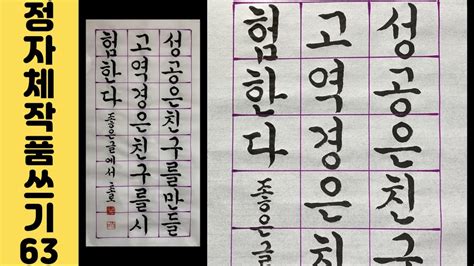 정자체작품쓰기
63
성공은친구를만들
고역경은친구를시
험한다
좋은글에서
성공은친구
고역경은친
험한다
좋은글